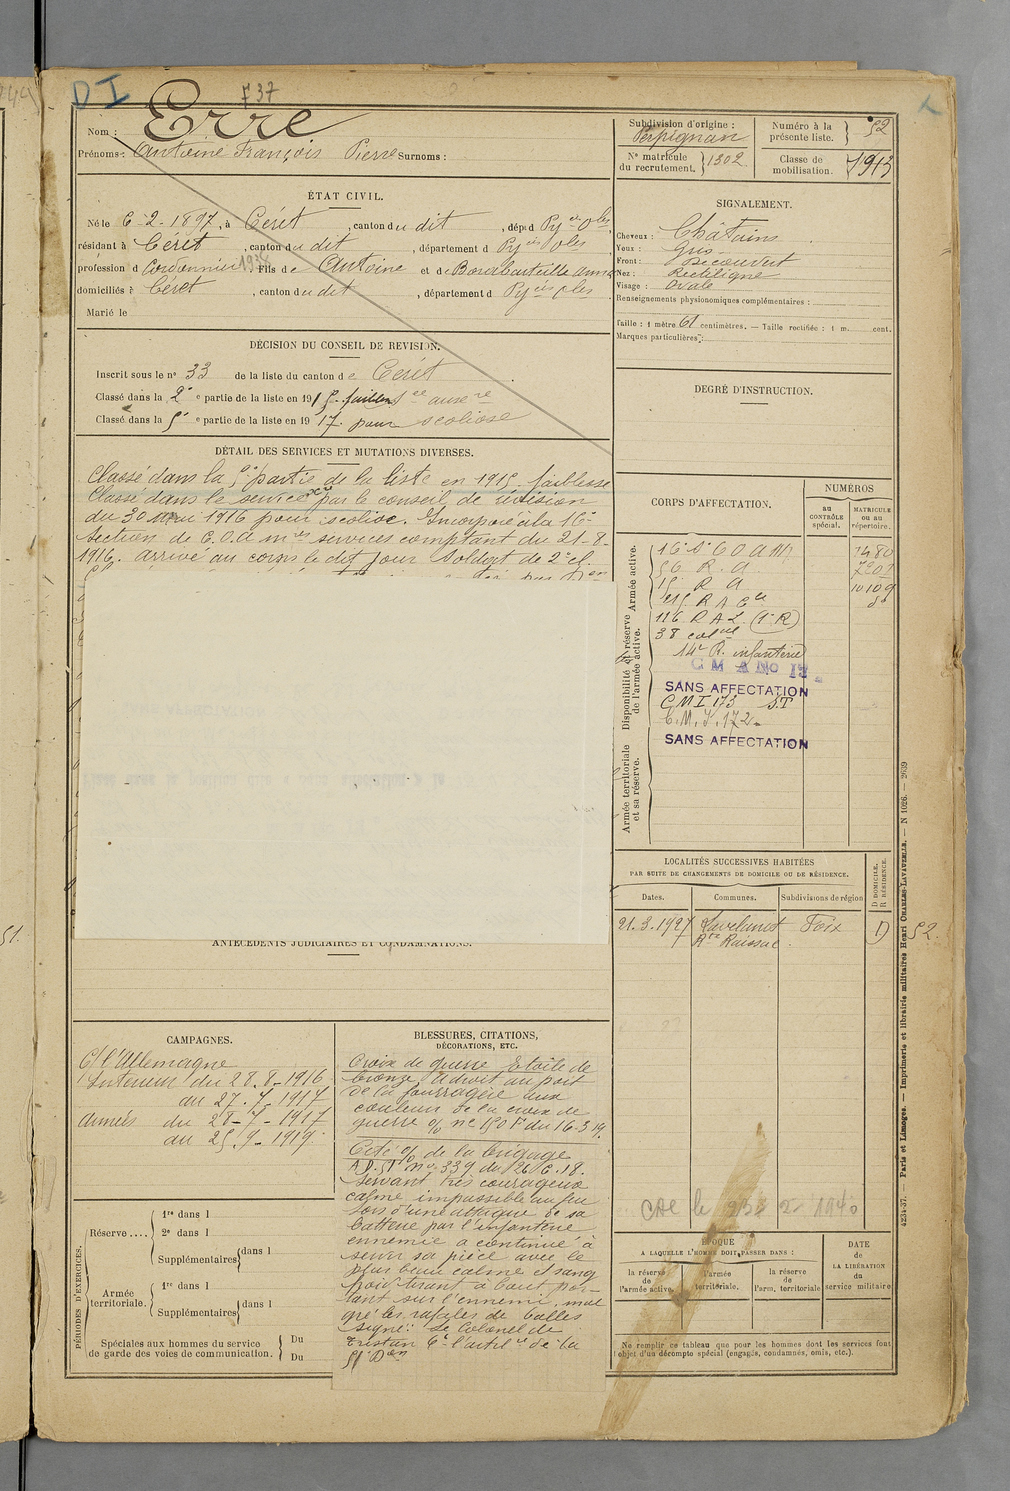 D I
F 37
Nom : Erre
Prénoms : Antoine François Pierre Surnoms :
ÉTAT CIVIL.
Né le 6-2-1897, à Céret, canton du dit, dép d Py ées Oles
résidant à Céret, canton du dit, département d Py ées Oles
profession d Cordonnier 1938 Fils de Antoine et de anna
domiciliés à Céret, canton du dit, département d Py ées Oles
Marié le
DÉCISION DU CONSEIL DE REVISION.
Inscrit sous le n° 33 de la liste du canton de Céret
Classé dans la 2e partie de la liste en 191
Classé dans la 5e partie de la liste en 1917. pour scoliose
DÉTAIL DES SERVICES ET MUTATIONS DIVERSES.
Classé dans la 5e partie de la liste en 1915. faiblesse
Classé dans le service par le conseil de révision
du 30 mai 1916 pour scoliose. Incorporé à la 16e
section de C.O.A. services comptant du 21-8-
1916. arrivé au corps le dit jour Soldat de 2e cl.
ANTÉCÉDENTS JUDICIAIRES ET CONDAMNATIONS.
CAMPAGNES.
C/ l'Allemagne
Intérieur du 28.8-1916
au 27.7-1917
armées du 28-7-1917
au 25.9-1919.
BLESSURES, CITATIONS,
DÉCORATIONS, ETC.
Croix de guerre Etoile de
bronze, a droit au port
de la fourragère aux
couleurs de la croix de
guerre o/o n° 150 F du 16-3-19.
Cité o/o de la brigade
A.D. 51 n° 339 du 26.6.18.
Servant très courageux
calme impassible au feu
lors d'une attaque de sa
batterie par l'infanterie
ennemie a continué à
servir sa pièce avec le
plus beau calme et sang
froid tirant à bout por-
tant sur l'ennemi, mal
gré les rafales de balles
signé: le Colonel de
Tristan Ct l'artil ie de la
51 Don
PÉRIODES D'EXERCICES.
Réserve .... 1re dans l
2e dans l
Supplémentaires dans l
Armée territoriale. 1re dans l
Supplémentaires dans l
Spéciales aux hommes du service
de garde des voies de communication. Du
Du
Subdivision d'origine :
Perpignan
N° matricule
du recrutement. 1302
Numéro à la
présente liste. 52
Classe de
mobilisation. 1913
SIGNALEMENT.
Cheveux : Châtains
Yeux : Gris
Front : Découvert
Nez : Rectiligne
Visage : Ovale
Renseignements physionomiques complémentaires :
Taille : 1 mètre 61 centimètres. — Taille rectifiée : 1 m. cent.
Marques particulières :
DEGRÉ D'INSTRUCTION.
CORPS D'AFFECTATION.
NUMÉROS
au
CONTRÔLE
spécial.
MATRICULE
ou au
répertoire.
Armée active.
16e S. C O A M 7480
56 R. A. 7202
15 R A 10109
215 R A Cie do
116 R A L (1e R)
38 colal
Disponibilité et réserve
de l'armée active.
14e R. infanterie
C M A No 15
SANS AFFECTATION
C M I 173 S.T
C. M. I. 172
SANS AFFECTATION
Armée territoriale
et sa réserve.
LOCALITÉS SUCCESSIVES HABITÉES
PAR SUITE DE CHANGEMENTS DE DOMICILE OU DE RÉSIDENCE.
Dates. Communes. Subdivisions de région
D DOMICILE.
R RÉSIDENCE.
21.3.1927 Lavelanet Foix D 52.
Raissac
1940
ÉPOQUE
A LAQUELLE L'HOMME DOIT PASSER DANS :
la réserve
de
l'armée active.
l'armée
territoriale.
la réserve
de
l'arm. territoriale
DATE
de
LA LIBÉRATION
du
service militaire
Ne remplir ce tableau que pour les hommes dont les services font
l'objet d'un décompte spécial (engagés, condamnés, omis, etc.).
4234-37. — Paris et Limoges. — Imprimerie et librairie militaires Henri CHARLES-LAVAUZELLE. — N 1026. — 2639
51.